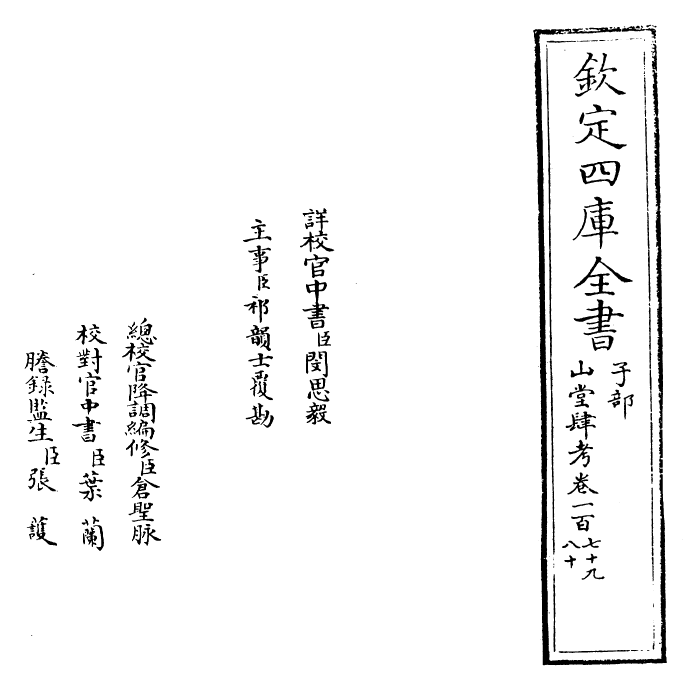 欽定四庫全書
子部
山堂肆考卷一百七十九
八十
詳校官中書臣閔思毅
主事臣祁韻士覆勘
總校官降調編修臣倉聖脉
校對官中書臣葉蘭
謄錄監生臣張護